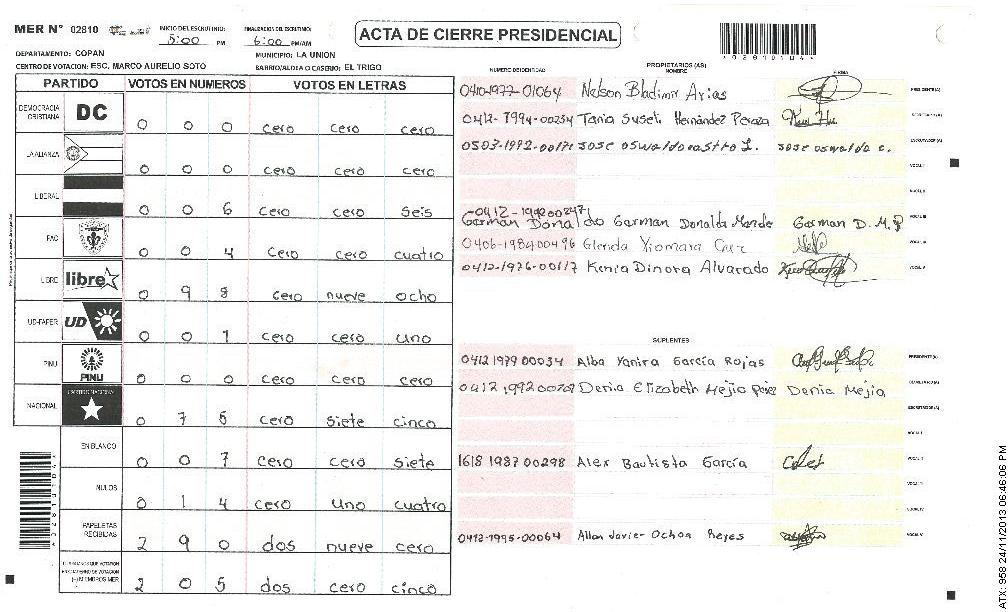 MER N° 02810 INICIO DEL ESCRUTINIO: 5:00 PM FINALIZACION DEL ESCRUTINIO: 6:00 PM/AM ACTA DE CIERRE PRESIDENCIAL
DEPARTAMENTO: COPAN MUNICIPIO: LA UNION
CENTRO DE VOTACION: ESC. MARCO AURELIO SOTO BARRIO/ALDEA O CASERIO: EL TRIGO
PARTIDO VOTOS EN NUMEROS VOTOS EN LETRAS
DEMOCRACIA CRISTIANA DC 0 0 0 cero cero cero
LA ALIANZA 0 0 0 cero cero cero
LIBERAL 0 0 6 cero cero seis
PAC 0 0 4 cero cero cuatro
LIBRE libre 0 9 8 cero nueve ocho
UD-FAPER UD 0 0 1 cero cero uno
PINU PINU 0 0 0 cero cero cero
NACIONAL PARTIDO NACIONAL 0 7 5 cero siete cinco
EN BLANCO 0 0 7 cero cero siete
NULOS 0 1 4 cero uno cuatro
PAPELETAS RECIBIDAS 2 9 0 dos nueve cero
2 0 5 dos cero cinco
NUMERO DE IDENTIDAD PROPIETARIOS (AS) NOMBRE FIRMA
0410-1977-01064 Nelson Bladimir Arias PRESIDENTE(A)
Tania Suseti Hernández Peraza SECRETARIO(A)
0503-1992-00171 Jose oswaldo castro L. Jose oswaldo c. ESCRUTADOR(A)
VOCAL I
VOCAL II
German Donaldo German Donaldo German D. M. P VOCAL III
0406-1984-00496 Glenda Xiomara Cruz
0412-1976-00117 Kenia Dinora Alvarado VOCAL V
SUPLENTES
0412 1979 00034 Alba Yanira García Rojas PRESIDENTE(A)
Denia Elizabeth Mejia Denia Mejia SECRETARIO(A)
ESCRUTADOR(A)
VOCAL I
1618 1987 00298 Alex Bautista García VOCAL II
VOCAL III
VOCAL IV
0412-1995-00064 Allan Javier Ochoa Reyes VOCAL V
ATX: 958 24/11/2013 06:46:06 PM